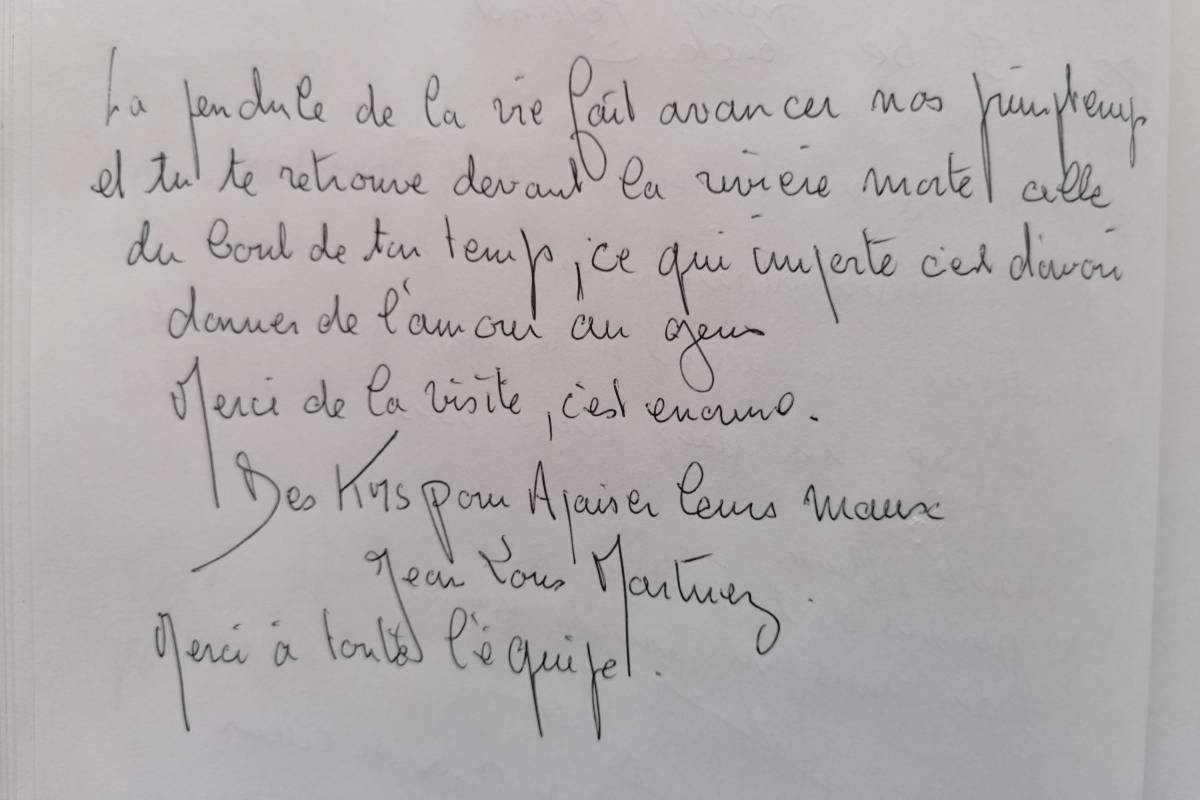 La pendule de la vie fait avancer nos printemp
et tu te retrouve devant la rivière mortel celle
du bout de ton temp, ce qui importe c'est d'avoir
donner de l'amour au gens
Merci de la visite, c'est enorme.
Des Kns pour Apaiser leurs maux
Jean Louis Martinez.
Merci à toutes l'équipe.